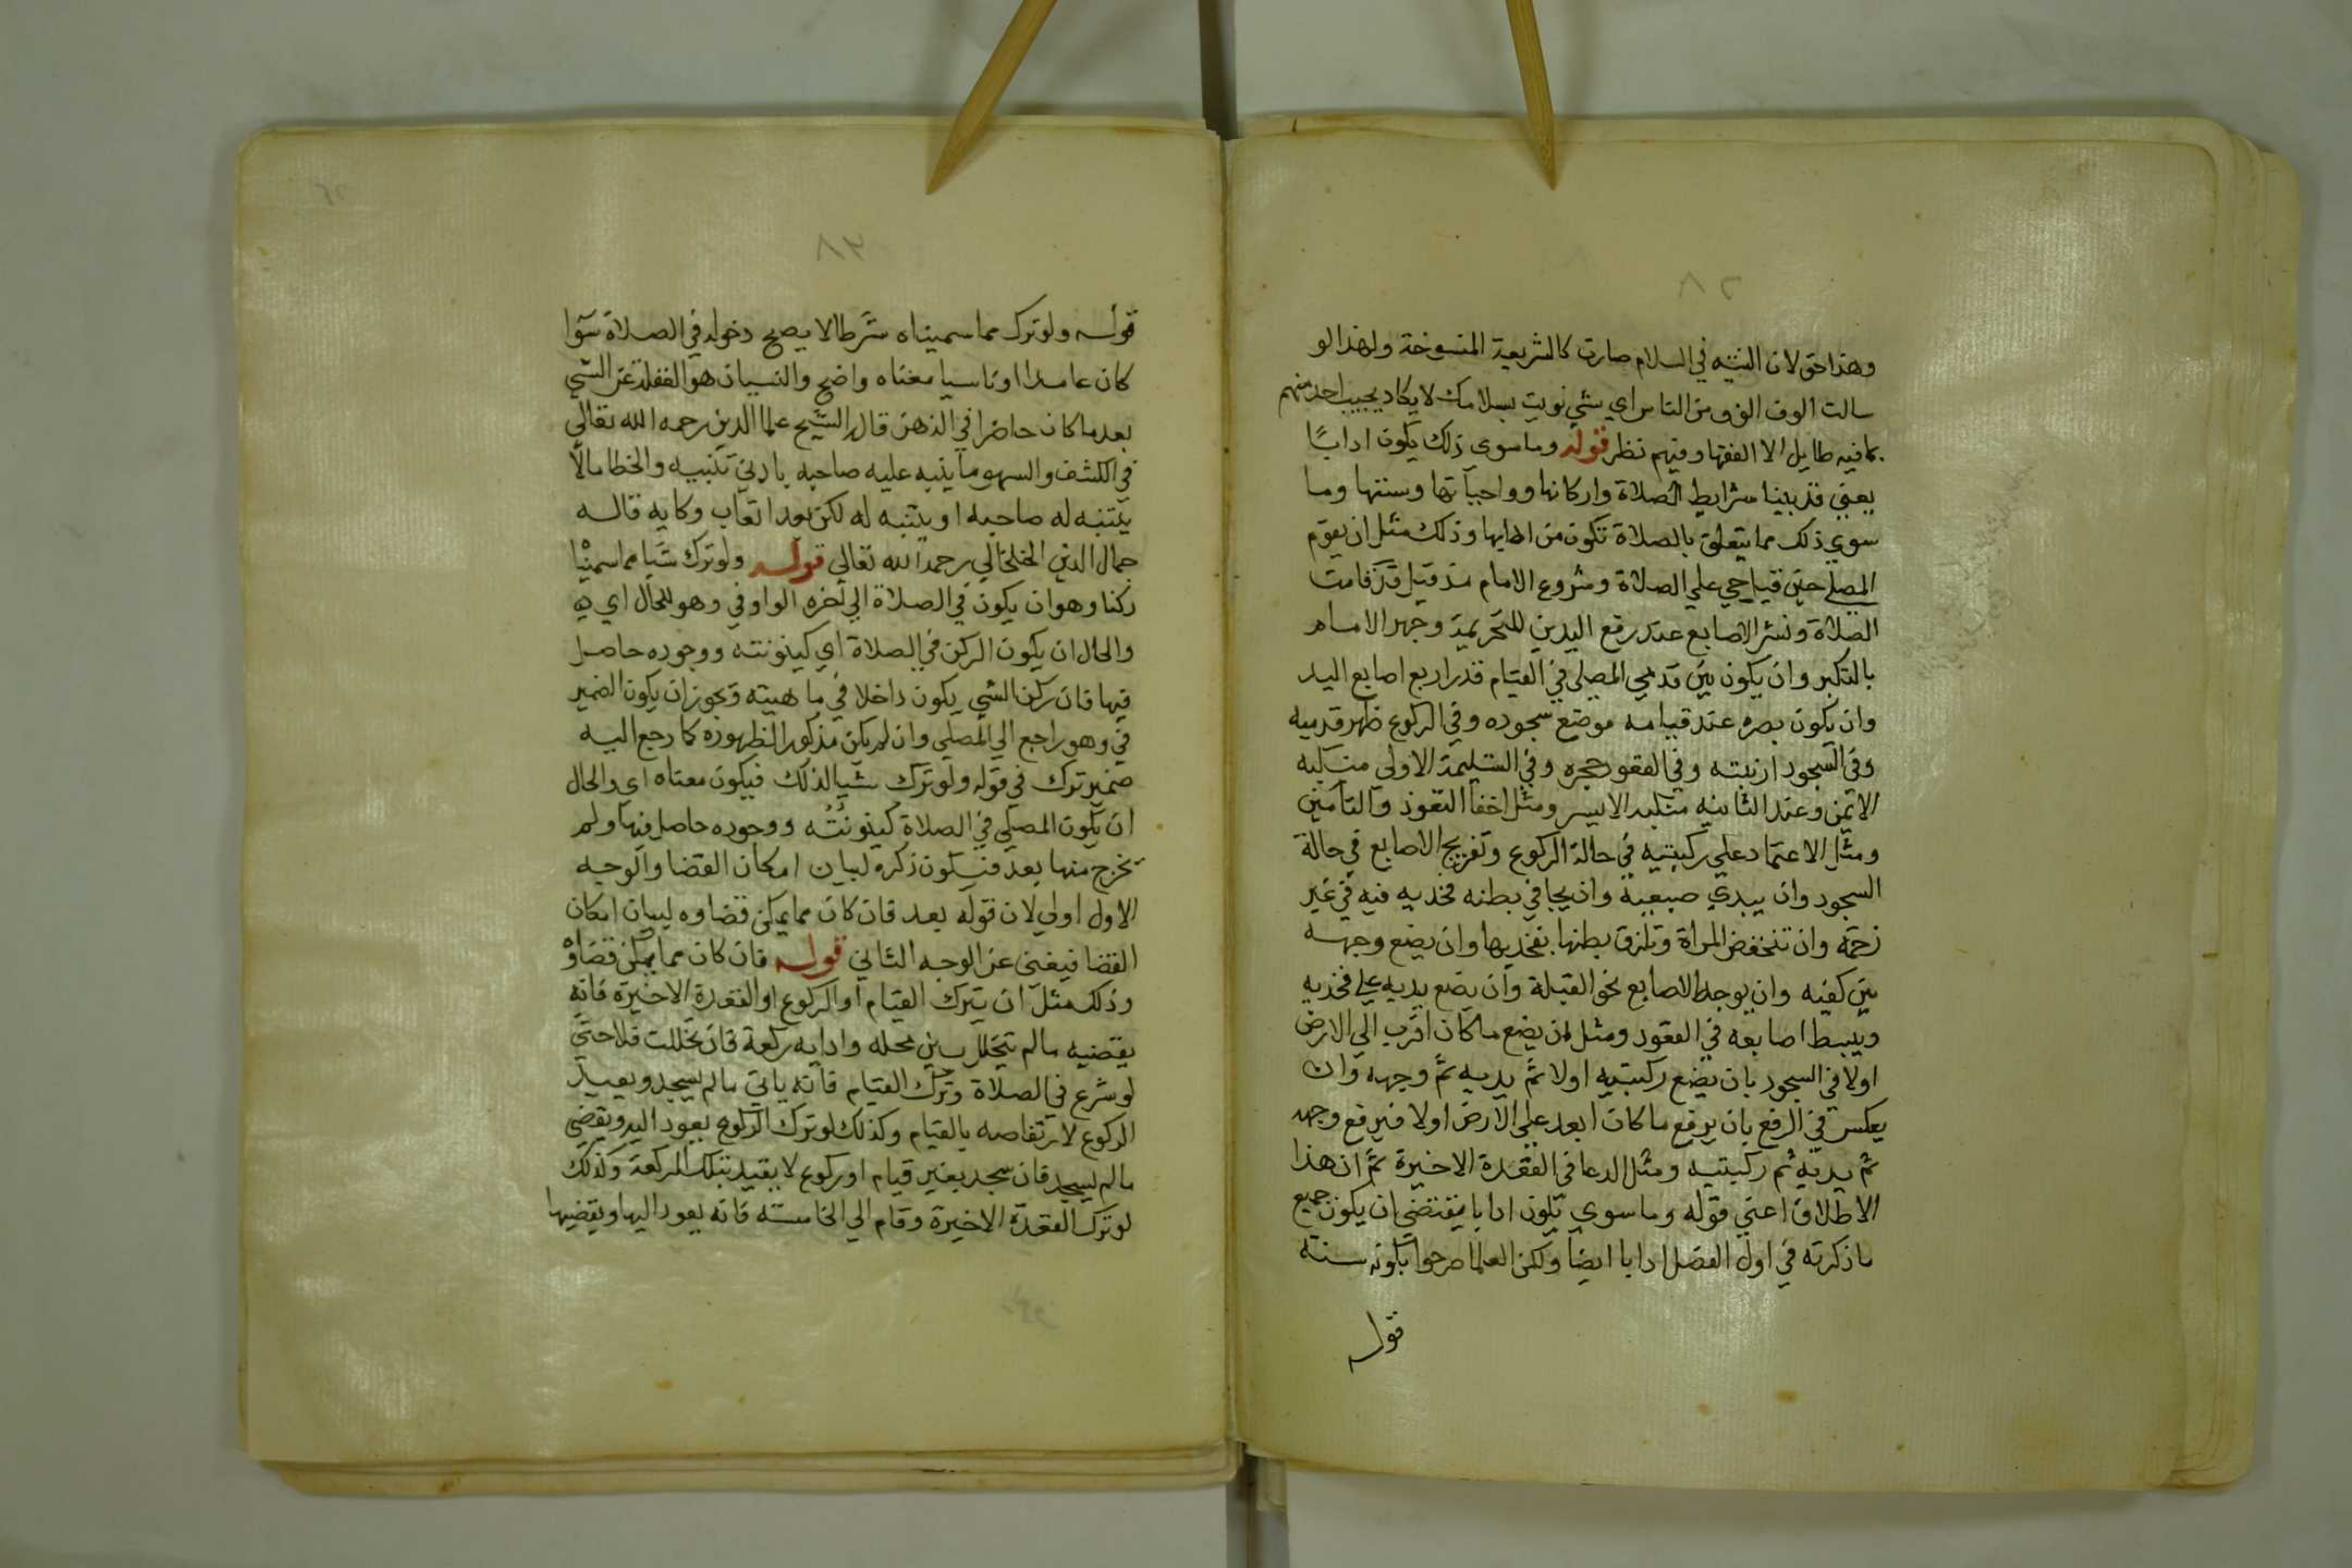 وهذا حق لان النيه في السلام صارت كالشريعة المنسوخة ولهذا لو
سالت الوف الوف من الناس اي شي نويت بسلامك لا يكاد يجيب احد منهم
بما فيه طايل الا الفقها وفيهم نظر قوله وما سوى ذلك يكون ادابًا
يعني قد بينا شرايط الصلاة واركانها وواجباتها وسنتها وما
سوي ذلك مما يتعلق بالصلاة تكون من ادابها وذلك مثل ان يقوم
المصلي حين قيل حي علي الصلاة وشروع الامام مذ قيل قد قامت
الصلاة ونشر الاصابع عند رفع اليدين للتحريمة وجهر الامام
بالتكبير وان يكون بين قدمي المصلي في القيام قدر اربع اصابع اليد
وان يكون بصره عند قيامه موضع سجوده وفي الركوع ظهر قدميه
وفي السجود ارنبته وفي القعود حجره وفي التسليمة الاولي منكبه
الايمن وعند الثانيه منكبه الايسر ومثل اخفا التعوذ والتامين
ومثل الاعتماد علي ركبتيه في حالة الركوع وتفريج الاصابع في حالة
السجود وان يبدي ضبعيه وان يجافي بطنه فخذيه فيه في غير
زحمة وان تنخفض المراة وتلزق بطنها بفخذيها وان يضع وجهه
بين كفيه وان يوجه الاصابع نحو القبلة وان يضع يديه علي فخذيه
ويبسط اصابعه في القعود ومثل ان يضع ما كان اقرب الي الارض
اولا في السجود بان يضع ركبتيه اولا ثم يديه ثم وجهه وان
يعكس في الرفع بان يرفع ما كان ابعد علي الارض اولا فيرفع وجهه
ثم يديه ثم ركبتيه ومثل الدعا في القعدة الاخيرة ثم ان هذا
الاطلاق اعني قوله وما سوي تكون ادابا يقتضي ان يكون جميع
ما ذكرته في اول الفصل ادابا ايضا ولكن العلما صرحوا بكونه سنة
قوله
٤٨
قوله ولو ترك مما سميناه شرطا لا يصح دخوله في الصلاة سوا
كان عامدا او ناسيا معناه واضح والنسيان هو الغفلة عن الشي
بعد ما كان حاضرا في الذهن قال الشيخ علا الدين رحمه الله تعالي
في الكشف والسهو ما ينبه عليه صاحبه بادني تنبيه والخطا ما لا
يتنبه له صاحبه او يتنبه له لكن بعد اتعاب وكايه قاله
جمال الدين الخلخالي رحمه الله تعالي قوله ولو ترك شيا مما سمينا
ركنا وهو ان يكون في الصلاة الي اخره الواو في وهو للحال اي
والحال ان يكون الركن في الصلاة اي كينونته ووجوده حاصل
فيها فان ركن الشي يكون داخلا في ماهيته ويجوز ان يكون الضمير
في وهو راجع الي المصلي وان لم يكن مذكورا لظهوره كما رجع اليه
ضمير ترك في قوله ولو ترك شيا لذلك فيكون معناه اي والحال
ان يكون المصلي في الصلاة كينونته ووجوده حاصل فيها ولم
يخرج منها بعد فيكون ذكره لبيان امكان القضا والوجه
الاول اولي لان قوله بعد فان كان مما يمكن قضاوه لبيان امكان
القضا فيغني عن الوجه الثاني قوله فان كان مما يمكن قضاؤ
وذلك مثل ان يترك القيام او الركوع او القعدة الاخيرة فانه
يقضيه ما لم يتخلل بين محله وادايه ركعة فان تخللت فلا حتي
لو شرع في الصلاة وترك القيام فانه ياتي ما لم يسجد ويعيد
الركوع لارتفاضه بالقيام وكذلك لو ترك الركوع يعود اليه ويقضي
ما لم يسجد فان سجد بغير قيام او ركوع لا يقيد بتلك الركعة وكذلك
لو ترك القعدة الاخيرة وقام الي الخامسة فانه يعود اليها ويقضيها